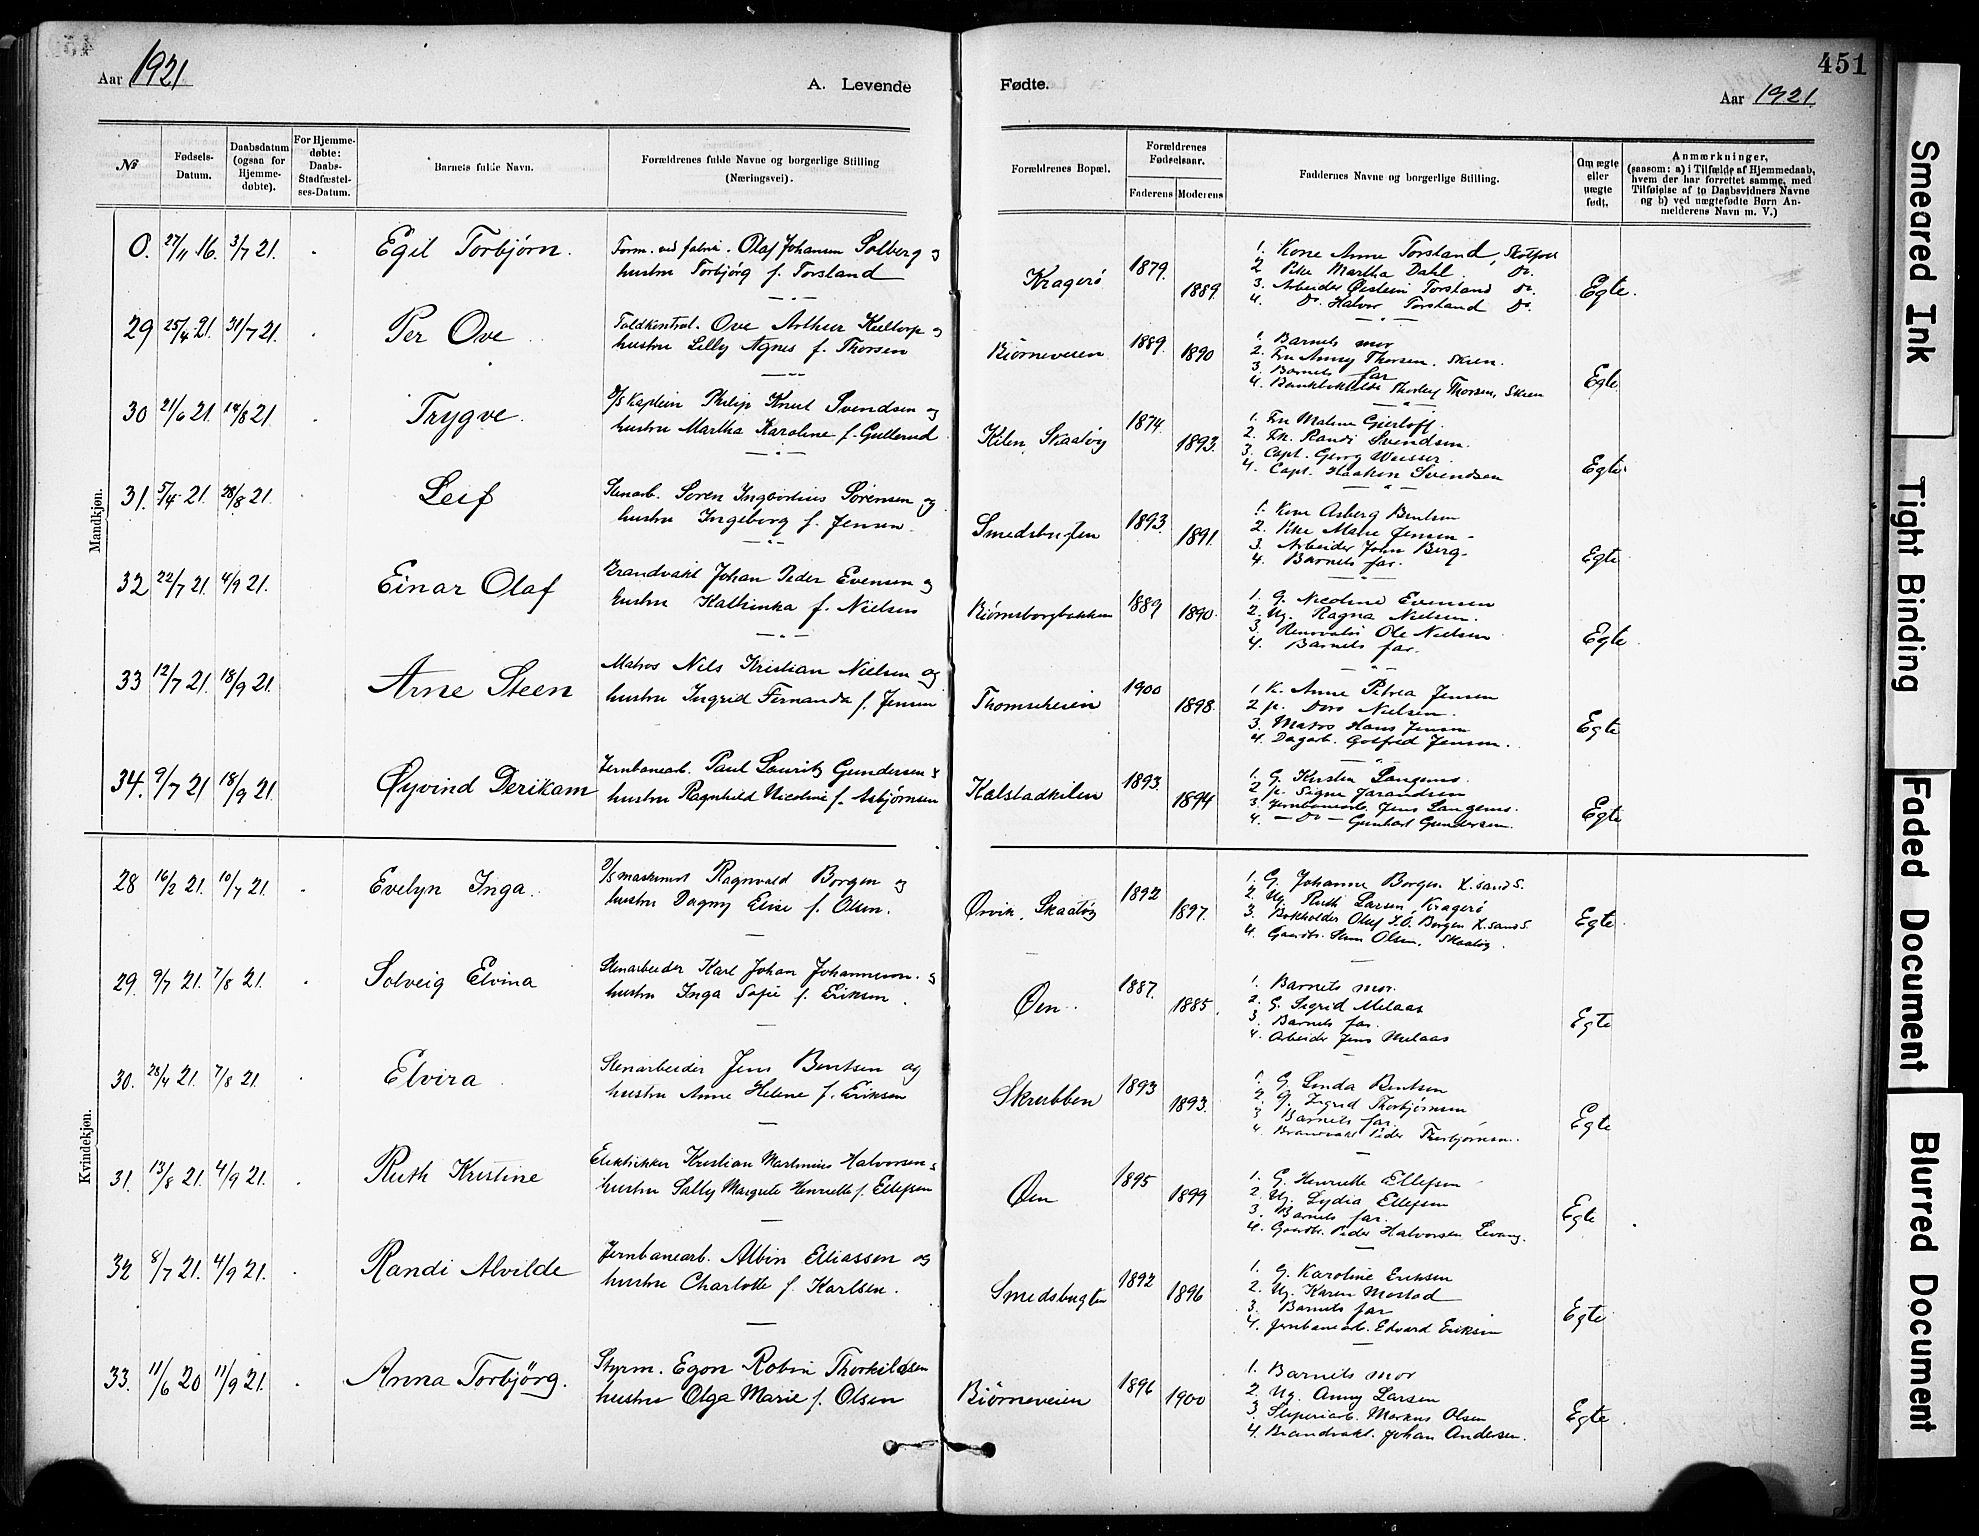 451
Aar 1921
A. Levende
Fødte.
Aar 1921
Mandkjøn.
Kvindekjøn.
No
Fødsels-Datum.
Daabsdatum (ogsaa for Hjemme-døbte).
For Hjemme-døbte: Daabs-Stadfæstel-ses-Datum.
Barnets fulde Navn.
Forældrenes fulde Navne og borgerlige Stilling (Næringsvei).
Forældrenes Bopæl.
Forældrenes Fødselsaar.
Faderens
Moderens
Faddernes Navne og borgerlige Stilling.
Om ægte eller uægte født.
Anmærkninger, (saasom: a) i Tilfælde af Hjemmedaab, hvem der har forrettet samme, med Tilføielse af to Daabsvidners Navne og b) ved uægtefødte Børn An-melderens Navn m. V.)
0. 27/11 16. 3/7 21. Egil Torbjørn. Form. ved fabrik. Olaf Johansen Solberg og
hustru Torbjørg f. Torsland
Kragerø 1879. 1889. Egte.
1. Kone Anne Torsland, Skotfoss
2 Pike Martha Dahl. Do.
3. Arbeider Øistein Torsland Do.
4. Do. Halvor Torsland Do.
29 25/4 21. 31/7 21. Per Ove Toldkontrol. Ove Arthur Keltorp og
hustru Lilly Agnes f. Thorsen
Bjørneveien 1889. 1890 Egte
1. Barnets mor
2. Fru Anny Thorsen. Skien.
3. Barnets far
4. Thorleif Thorsen, Skien
30 21/6 21. 14/8 21. Trygve. D/S Kaptein Philip Knut Svendsen og
hustru Martha Karoline f. Gullerud
Kilen, Skaatøy 1874. 1893. Egte
1. Fru Malene Gierloff.
2. Frk. Randi Svendsen.
3. Capt. Georg Weisser.
4. Capt. Haakon Svendsen
31. 5/4 21. 28/8 21. Leif Stenarb. Søren Sørensen og
hustru Ingeborg f. Jensen
Smedsbugten 1893. 1891. Egte
1. Kone Asberg Bentsen
2. Pike Jensen
3. Arbeider John Berg
4. Barnets far.
32 22/7 21. 4/9 21. Einar Olaf Brandvakt Johan Peder Evensen og
hustru Kathinka f. Nielsen
Bjørnsborgbakken 1889 1890. Egte
1. G. Nicoline Evensen
2. Ug. Ragna Nielsen.
3. Ole Nielsen
4. Barnets far.
33 12/7 21. 18/9 21. Arne Steen Matros Nils Kristian Nielsen og
hustru Ingrid Fernanda f. Jensen
Thomseheien 1900 1898. Egte
1. K. Anne Petrea Jensen
2 p. Dora Nielsen.
3. Matros Hans Jensen
4. Dagarb. Gotfred Jensen.
34. 9/7 21 18/9 21. Øyvind Derikam Jernbanearb. Paul Lauritz Gundersen &
hustru Ragnhild Nicoline f. Asbjørnsen
Kalstadkilen 1893. 1894 Egte
1. G. Kirsten Langens.
2 p. Signe Jarandsen
3. Jernbanearb. Jens Langens.
4. — Do — Gunhart Gundersen.
28 16/2 21. 10/7 21. Evelyn Inga. D/S maskinist Ragnvald Borgen og
hustru Dagny Elise f. Olsen.
Ørvik, Skaatøy 1892 1897. Egte
1. G. Johanne Borgen K.sand S.
2. Ug. Ruth Larsen, Kragerø
3. Bokholder Oluf Borgen K.sand S.
4. Gaardbr. Olsen, Skaatøy.
29. 9/7 21. 7/8 21. Solveig Elvina Stenarbeider Karl Johan Johannesen. &
hustru Inga Sofie f. Eriksen.
Øen 1887. 1885. Egte
1. Barnets mor.
2. G. Sigrid Melaas
3. Barnets far.
4. Arbeider Jens Melaas
30. 28/4 21. 7/8 21. Elvira Stenarbeider Jens Bentsen og
hustru Anne Helene f. Eriksen
Skrubben 1893 1893. Egte
1. G. Linda Bentsen
2. G. Ingrid Thorbjørnsen
3 Barnets far.
4. Brandvakt Peder Thorbjørnsen.
31. 13/8 21. 4/9 21. Ruth Kristine Elektrikker Kristian Martinius Halvorsen &
hustru Sally Margrete Henriette f. Ellefsen
Øen 1895 1899 Egte
1. G. Henriette Ellefsen
2. Ug. Lydia Ellefsen
3. Barnets far.
4. Gaardbr. Peder Halvorsen Levang.
32 8/7 21. 4/9 21. Randi Alvilde Jernbanearb. Albin Eliassen og
hustru Charlotte f. Karlsen.
Smedsbugten 1892 1896 Egte
1. G. Karoline Eriksen
2. Ug. Karen Mostad
3. Barnets far
4. Jernbanearb. Edvard Eriksen
33. 11/6 20 11/9 21. Anna Torbjörg. Styrm. Egon Robin Thorkildsen
hustru Olga Marie f. Olsen
Bjørneveien 1896 1900 Egte
1. Barnets mor
2. Ug. Anny Larsen
3. Sliperiarb. Markus Olsen
4. Brandvakt. Johan Andersen.
Smeared Ink
Tight Binding
Faded Document
Blurred Document